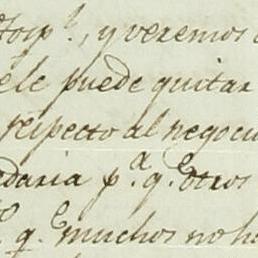 Hosp.l, y veremos
ele puede quitar
respecto al negocio
daria p.a q.e otros
q.e muchos no ha